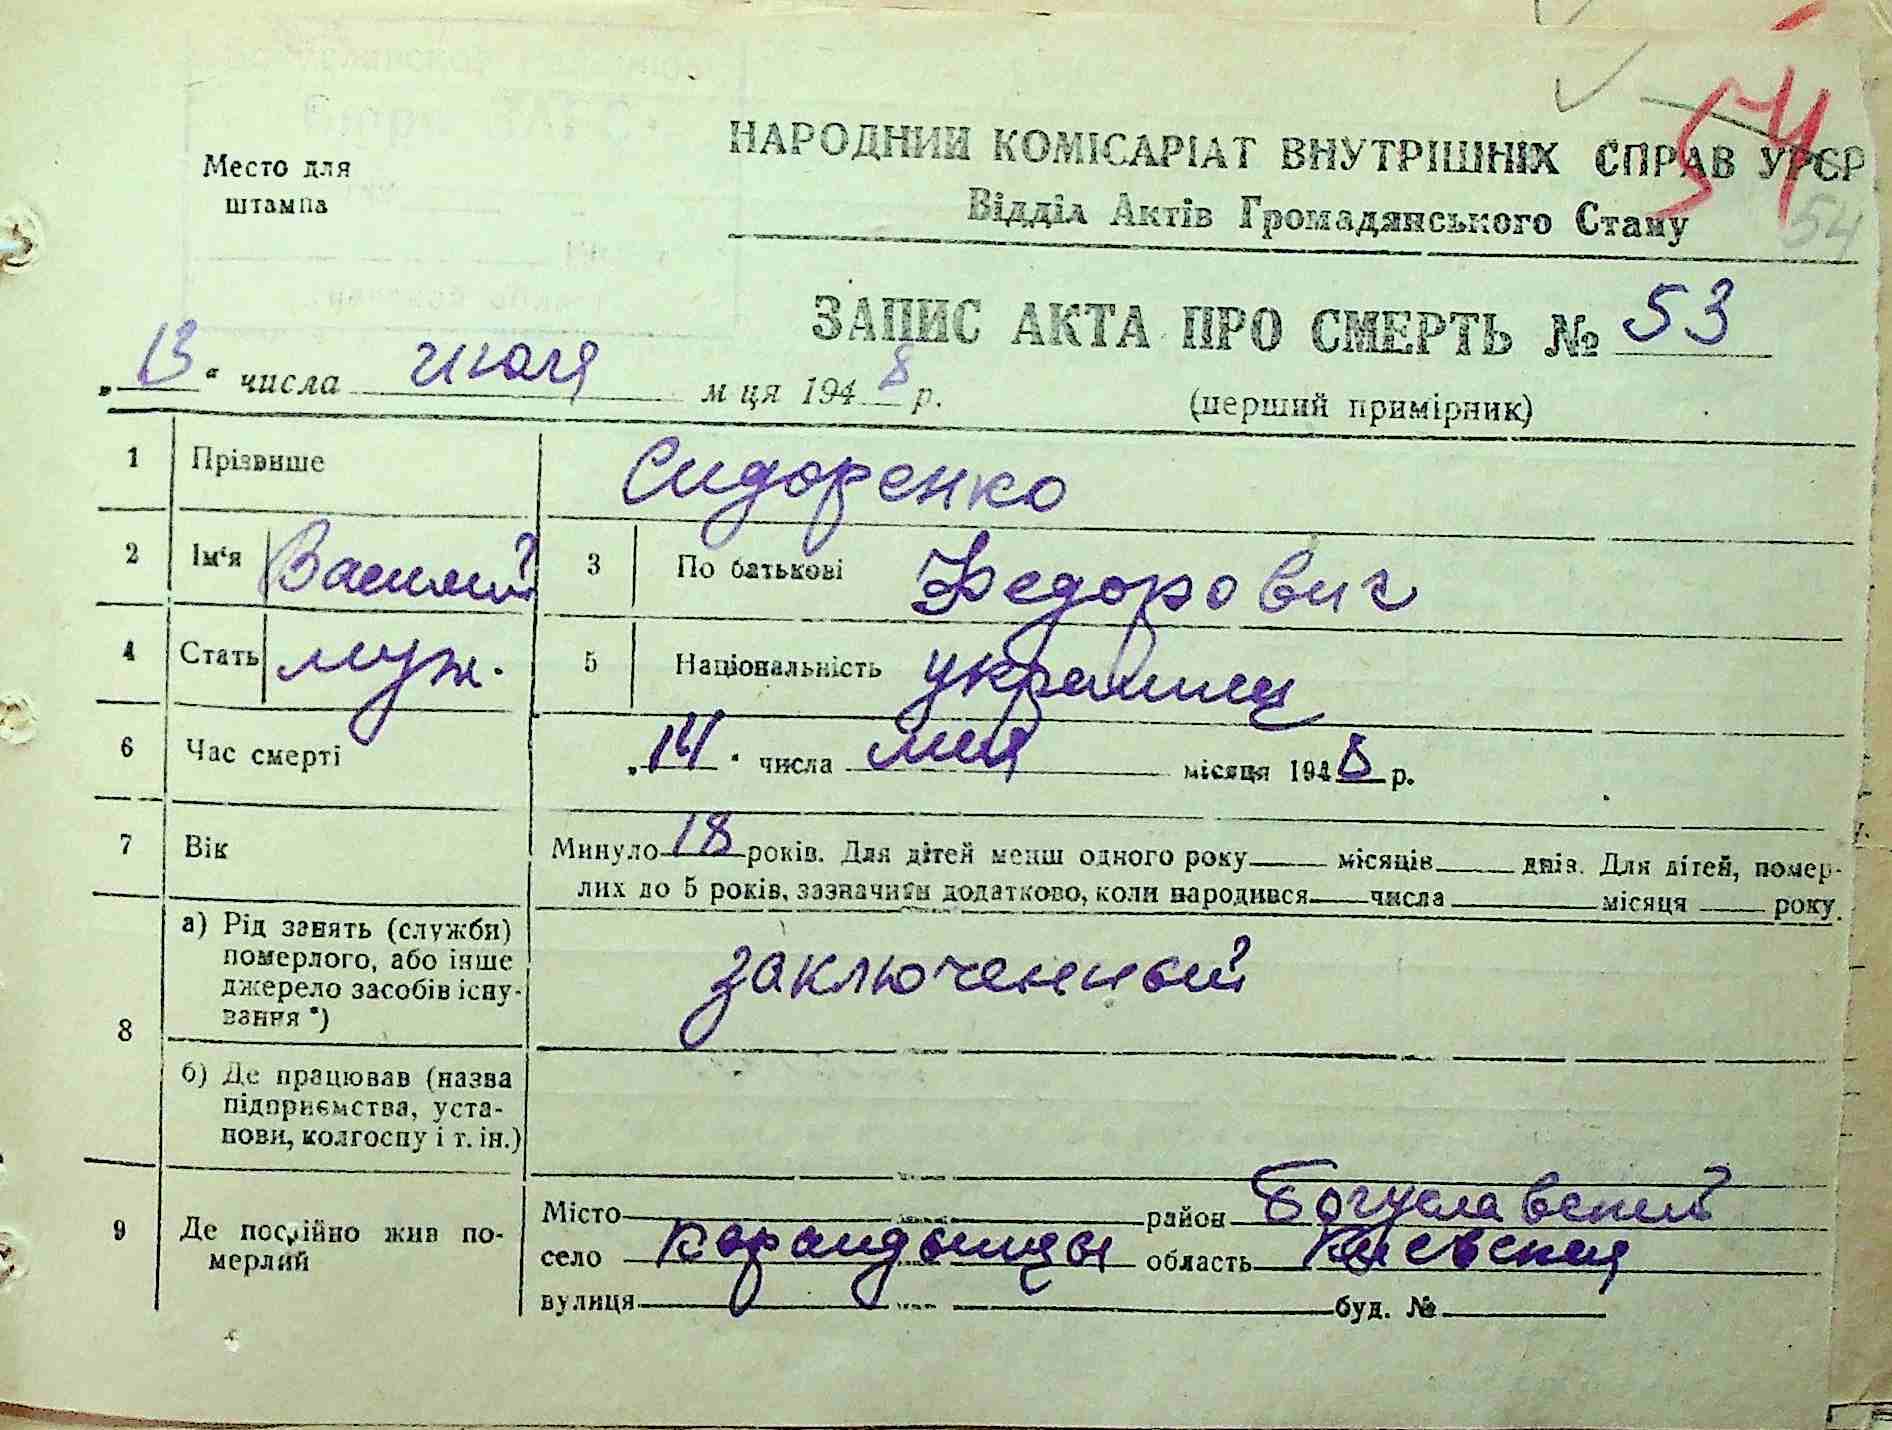 54
54
Место для
штампа
НАРОДНИЙ КОМІСАРІАТ ВНУТРІШНІХ СПРАВ УРСР
Відділ Актів Громадянського Стану
ЗАПИС АКТА ПРО СМЕРТЬ № 53
„13“ числа июля м ця 1948 р.
(перший примірник)
1 Прізвище Сидоренко
2 Ім‘я Василий 3 По батькові Федорович
4 Стать муж. 5 Національність украинец
6 Час смерті „14“ числа мая місяця 1948 р.
7 Вік Минуло 18 років. Для дітей менш одного року місяців днів. Для дітей, помер-
лих до 5 років, зазначити додатково, коли народився числа місяця року.
8 а) Рід занять (служби)
померлого, або інше
джерело засобів існу-
вання *)
заключенный
б) Де працював (назва
підприємства, уста-
нови, колгоспу і т. ін.)
9 Де постійно жив по-
мерлий
Місто район Богуславский
село Карандынцы область Киевская
вулиця буд. №